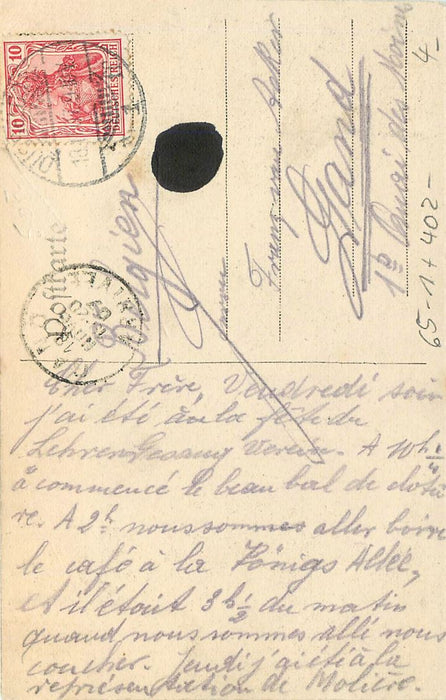 10 10
DEUTSCHES REICH
Postkarte
Belgien
Frans van Acker
Gand
19 Quai des Moines
4-
65-1+402-
Cher Frère, Vendredi soir
j'ai été à la fête du
Lehrer Gesang Verein. A 10h½
a commencé le beau bal de clôtu
re. A 2h nous sommes aller boire
le café à la Königs Allée,
et il était 3h½ du matin
quand nous sommes allé nous
coucher. Jeudi j'ai été à la
représentation de Molière.